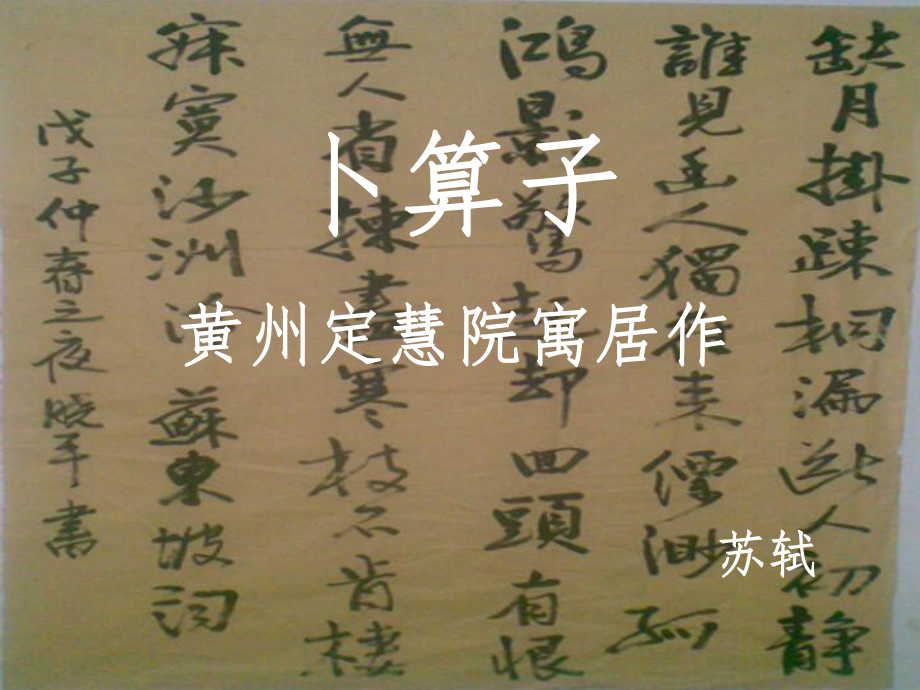 卜算子
黄州定慧院寓居作
苏轼
缺月掛踈桐漏断人初静
誰見幽人獨往来渺孤
鴻影驚起却回頭有恨
無人省揀盡寒枝不肯棲
寂寞沙洲冷 蘇東坡詞
戊子仲春之夜晓平書